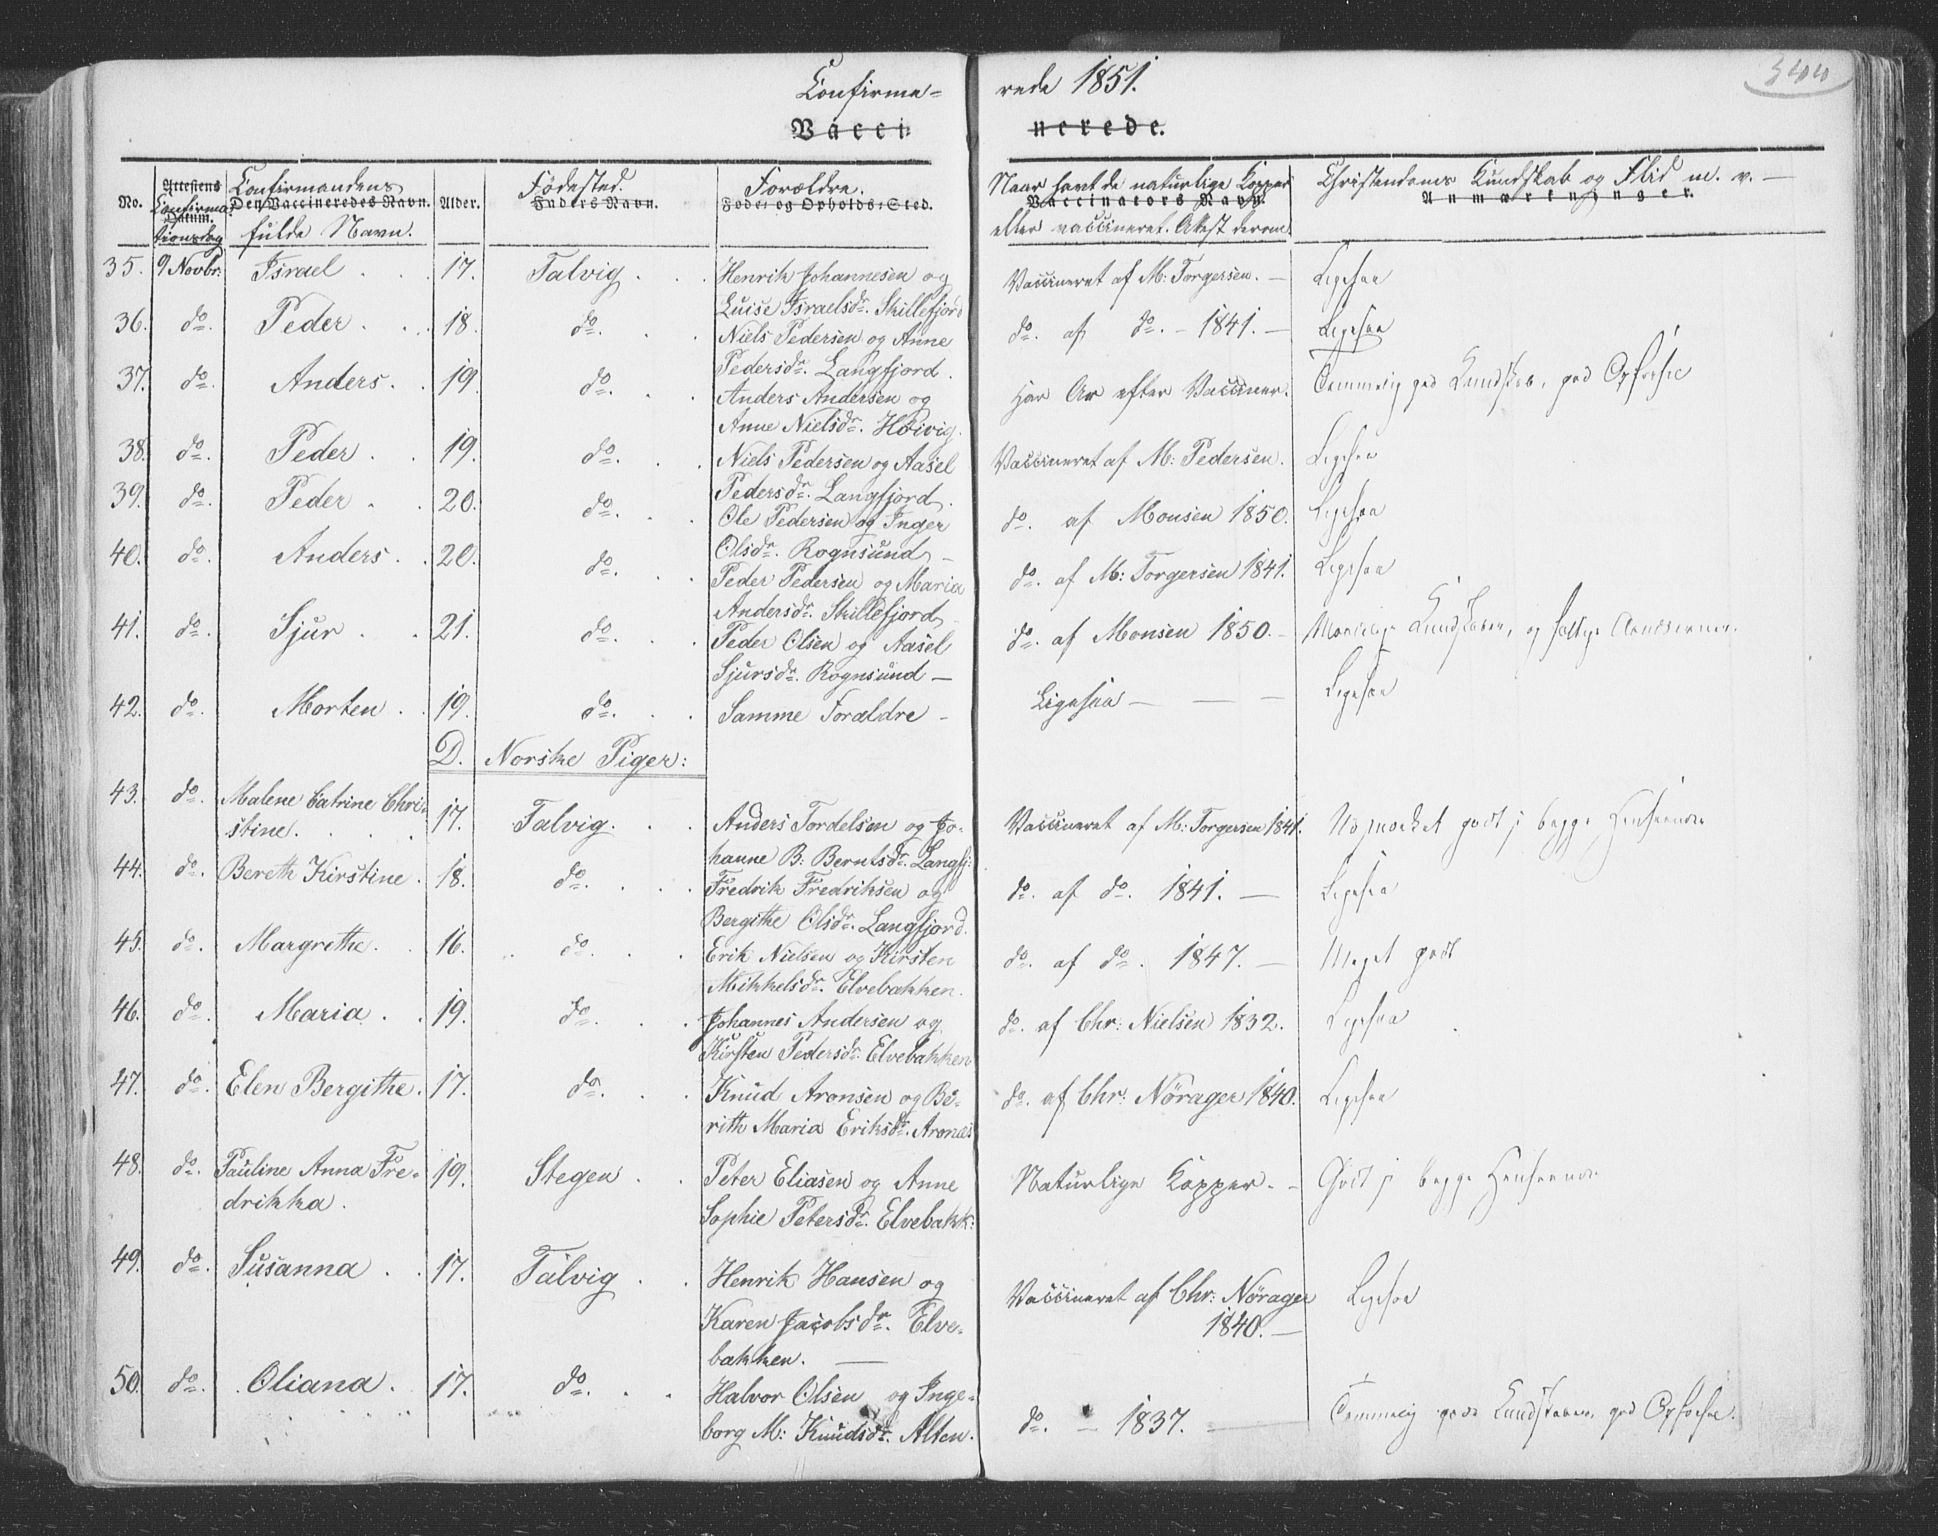 344
Confirme-
rede 1851.
Vacci
nerede.
No.
Attestens Datum.
Confirmationsdag
Confirmandens
Den Vaccineredes Navn.
fulde Navn.
Alder.
Fødested.
Faders Navn.
Forældre.
Føde- og Opholds-Sted.
Naar havt de naturlige Kopper
Vaccinators Navn.
eller vaccineret. Attest derom.
Christendoms Kundskab og Flid m. v. —
Anmærkninger.
35. 9 Novbr. Israel . . 17. Talvig . . Henrik Johannesen og Vaccineret af M: Torgersen. — Ligesaa
Luise Israelsdr. Skillefjord
36. do. Peder . . . 18. do. . . Niels Pedersen og Anne do. af do. — 1841. — Ligesaa
Pedersdr. Langfjord.
37. do. Anders . . 19. do. . . Anders Andersen og Har Ar efter Vacciner. Temmelig god Kundskab, god Opførsel
Anne Nielsdr. Høivig.
38. do. Peder . . 19. do. . . Niels Pedersen og Aasel Vaccineret af M: Pedersen. Ligesaa
Pedersdr. Langfjord.
39. do. Peder . . 20. do. . . Ole Pedersen og Inger do. af Monsen 1850. Ligesaa
Olsdr. Rognsund —
40. do. Anders . . 20. do. . . Peder Pedersen og Maria do. af M: Torgersen 1841. Ligesaa
Andersdr. Skillefjord
41. do. Sjur . . 21. do. . . Peder Olsen og Aasel do. af Monsen 1850. — Kundskaber, og
Sjursdr. Rognsund —
42. do. Morten . . 19. do. . . Samme Forældre — Ligesaa — — — Ligesaa
D. Norske Piger:
43. do. Malene Catrine Chri-
stine. . . . 17. Talvig. . . Anders Tordelsen og Jo- Vaccineret af M: Torgersen 1841. Udmærket godt i begge Henseender
hanne B: Berntsdr. Langfj:
44. do. Bereth Kirstine . 18. do. . . . Fredrik Fredriksen og do. af do. 1841. — Ligesaa
Bergithe Olsdr. Langfjord.
45. do. Margrethe. . 16. . . do. . . Erik Nielsen og Kirsten do. af do. 1847. — Meget godt
Mikkelsdr. Elvebakken.
46. do. Maria . . 19. do. . . Johannes Andersen og do. af Chr: Nielsen 1832. Ligesaa
Kirsten Pedersdr. Elvebakken
47. do. Elen Bergithe . 17. do. . . Knud Aronsen og Be- do. af Chr: Nörager 1840. Ligesaa
rith Maria Eriksdr. Aronæs
48. do. Pauline Anna Fre- 19. Stegen . . Peter Eliasen og Anne Naturlige Kopper. — Godt i begge Henseender
drikka. Sophie Petersdr. Elvebakk:
49. do. Susanna . . 17. Talvig . . Henrik Hansen og Vaccineret af Chr: Nörager Ligesaa
Karen Jacobsdr. Elve- 1840. —
bakken. —
50. do. Oliana . 17. do. . . Halvor Olsen og Inge- do. — 1837. — Temmelig gode Kundskaber, god Opførsel.
borg M: Knudsdr. Alten.